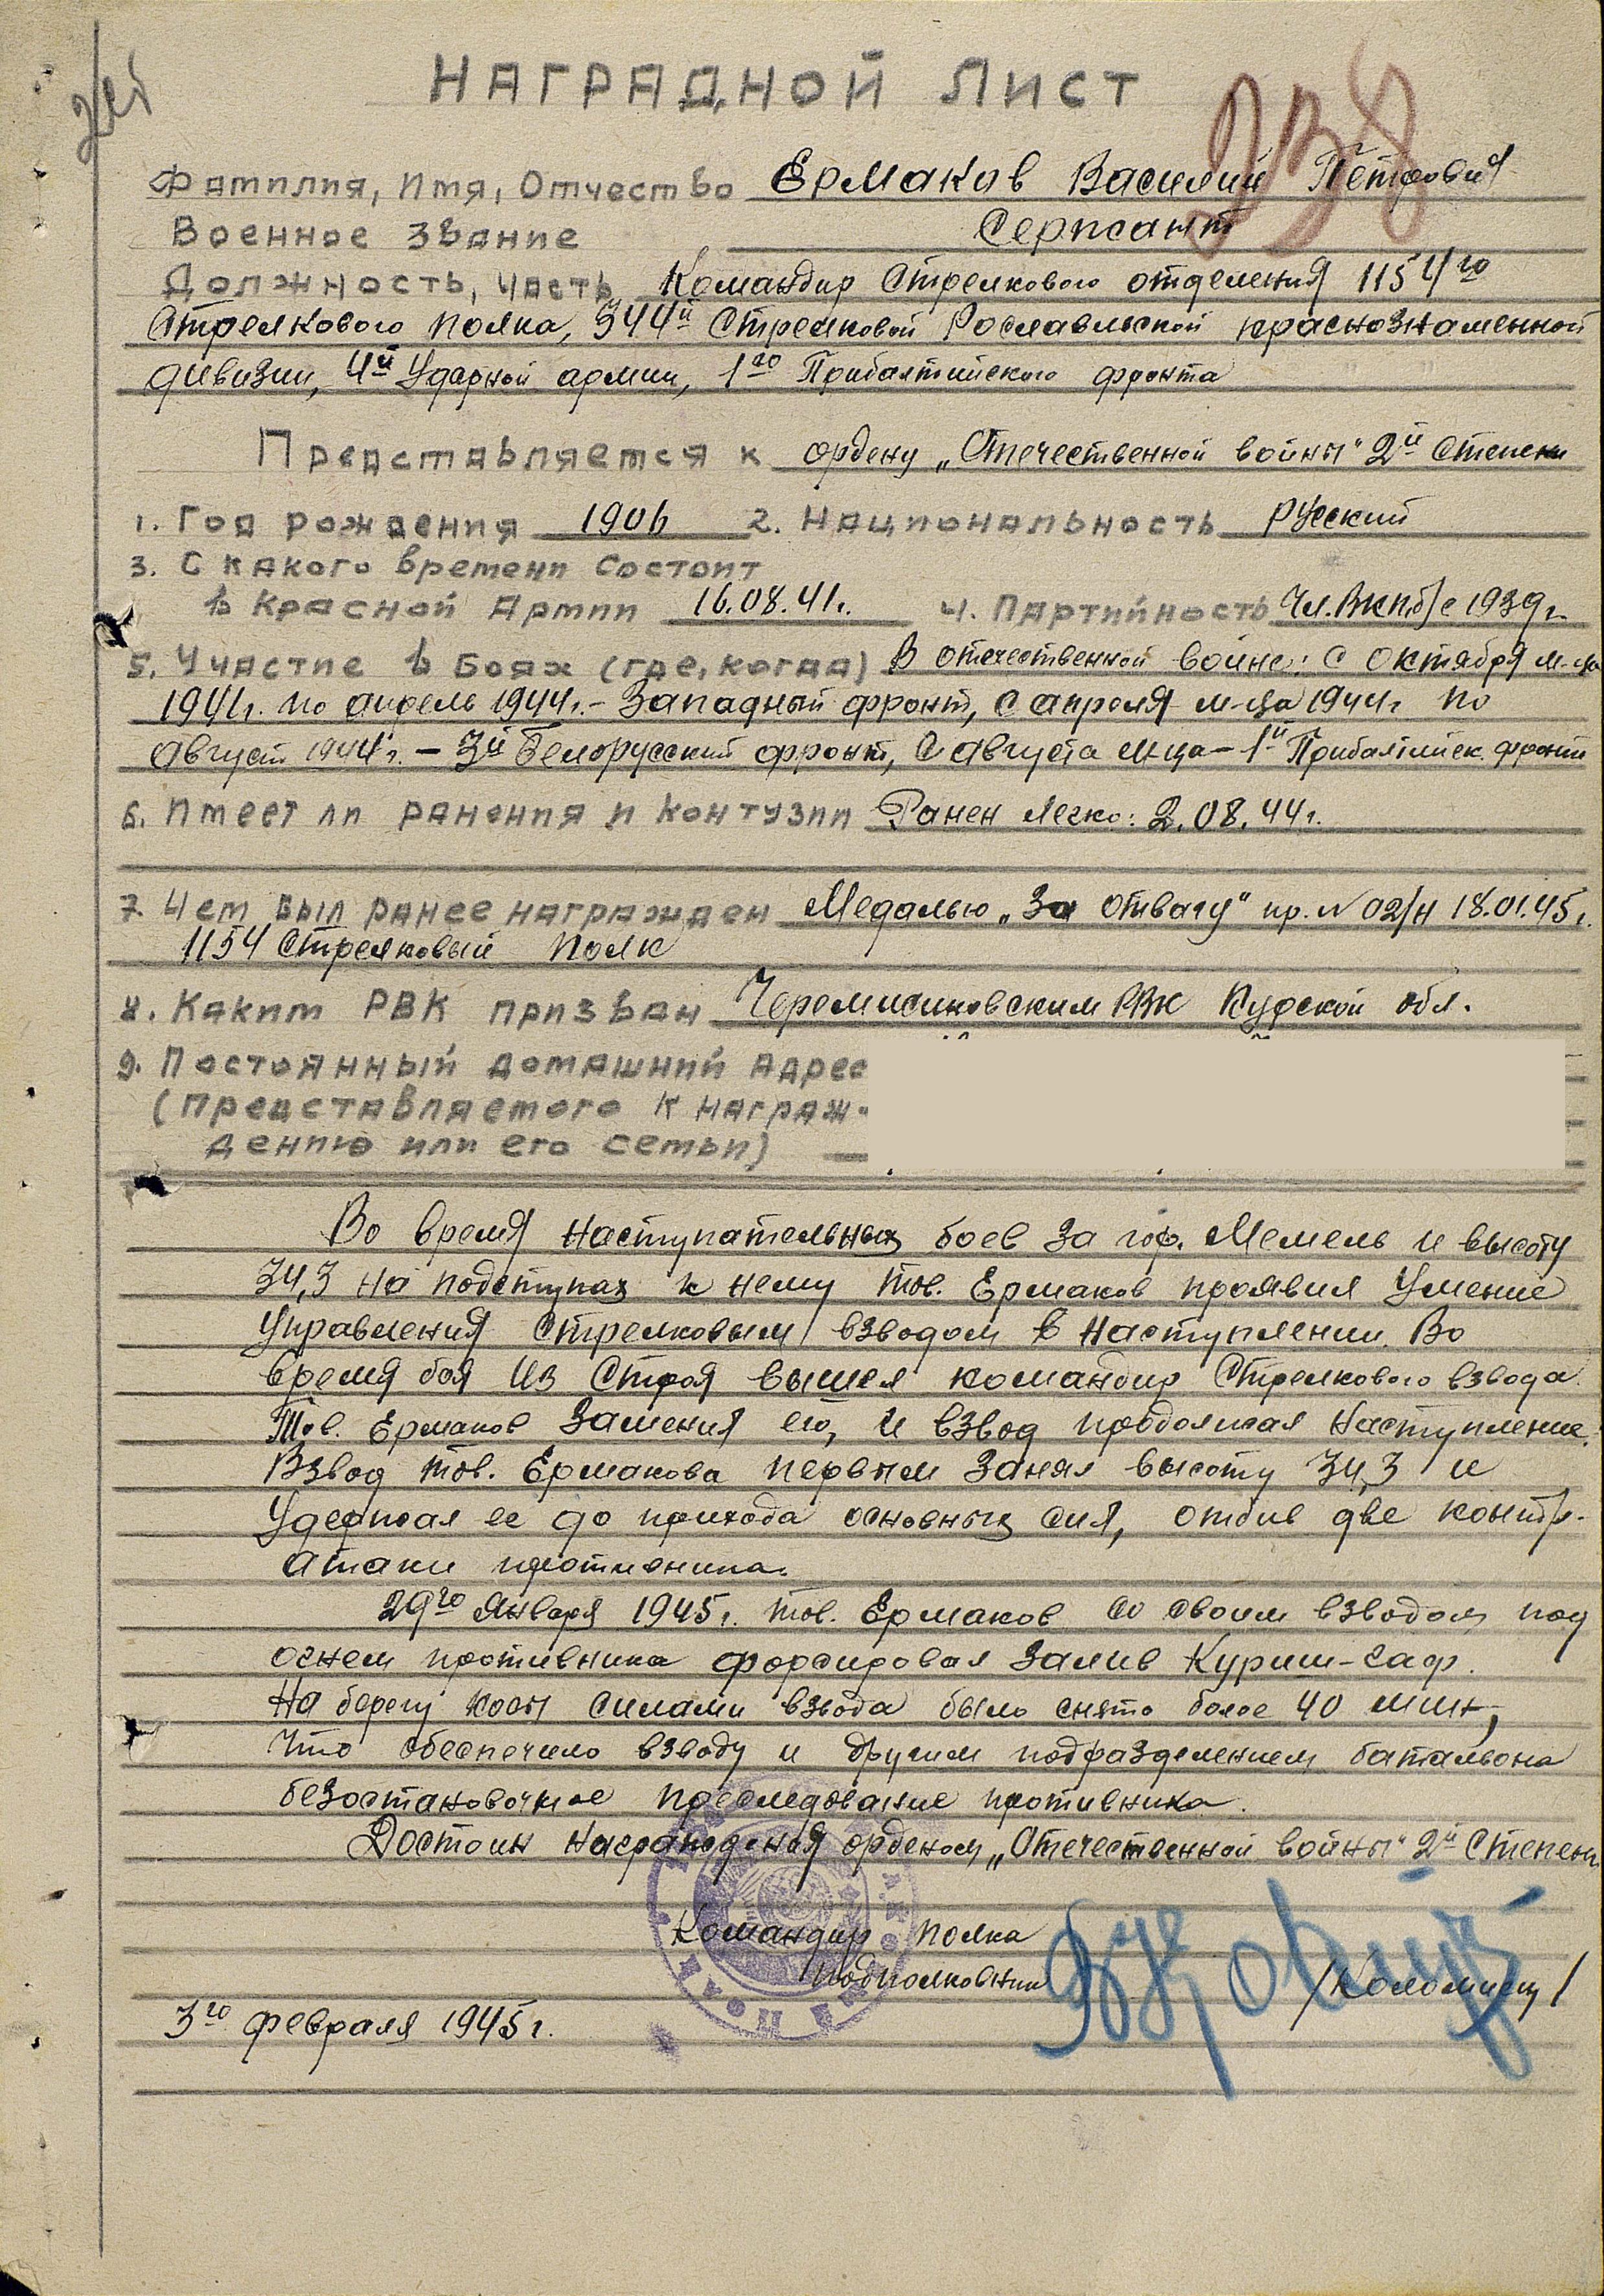 НАГРАДНОЙ ЛИСТ
238
Фамилия, Имя, Отчество Ермаков Василий Петрович
Военное звание Сержант
Должность, часть Командир Стрелкового отделения 1154го
Стрелкового полка, 344й Стрелковой Рославльской краснознаменной
дивизии, 4й Ударной армии, 1го Прибалтийского фронта
Представляется к ордену „Отечественной войны" 2й степени
1. Год рождения 1906 2. Национальность русский
3. С какого времени состоит
в Красной Армии 16.08.41г. 4. Партийность Чл.ВКП/б/ с 1939г.
5. Участие в боях (где, когда) В отечественной войне: С Октября м-ца
1941г. по апрель 1944г. – Западный фронт, с апреля м-ца 1944г по
август 1944г. – 3й Белорусский фронт, с августа м-ца – 1й Прибалтийск. фронт
6. Имеет ли ранения и контузии Ранен легко: 2.08.44г.
7. Чем был ранее награжден Медалью „За отвагу" пр. N 02/н 18.01.45г.
1154 Стрелковый полк
8. Каким РВК призван Черемисиновским РВК Курской обл.
9. Постоянный домашний адрес
(представляемого к награж-
дению или его семьи)
Во время наступательных боев за гор. Мемель и высоту
34,3 на подступах к нему тов. Ермаков проявил умение
управления стрелковым взводом в наступлении. Во
время боя из строя вышел командир стрелкового взвода.
Тов. Ермаков заменил его, и взвод продолжал наступление.
Взвод тов. Ермакова первым занял высоту 34,3 и
удержал ее до прихода основных сил, отбив две контр-
атаки противника.
29го января 1945г. тов. Ермаков со своим взводом под
огнем противника форсировал залив Куриш-гаф.
На берегу косы силами взвода было снято более 40 мин,
что обеспечило взводу и другим подразделением батальона
безостановочное преследование противника.
Достоин награждения орденом „Отечественной войны" 2й степени
Командир полка
подполковник /Коломиец/
3го февраля 1945г.